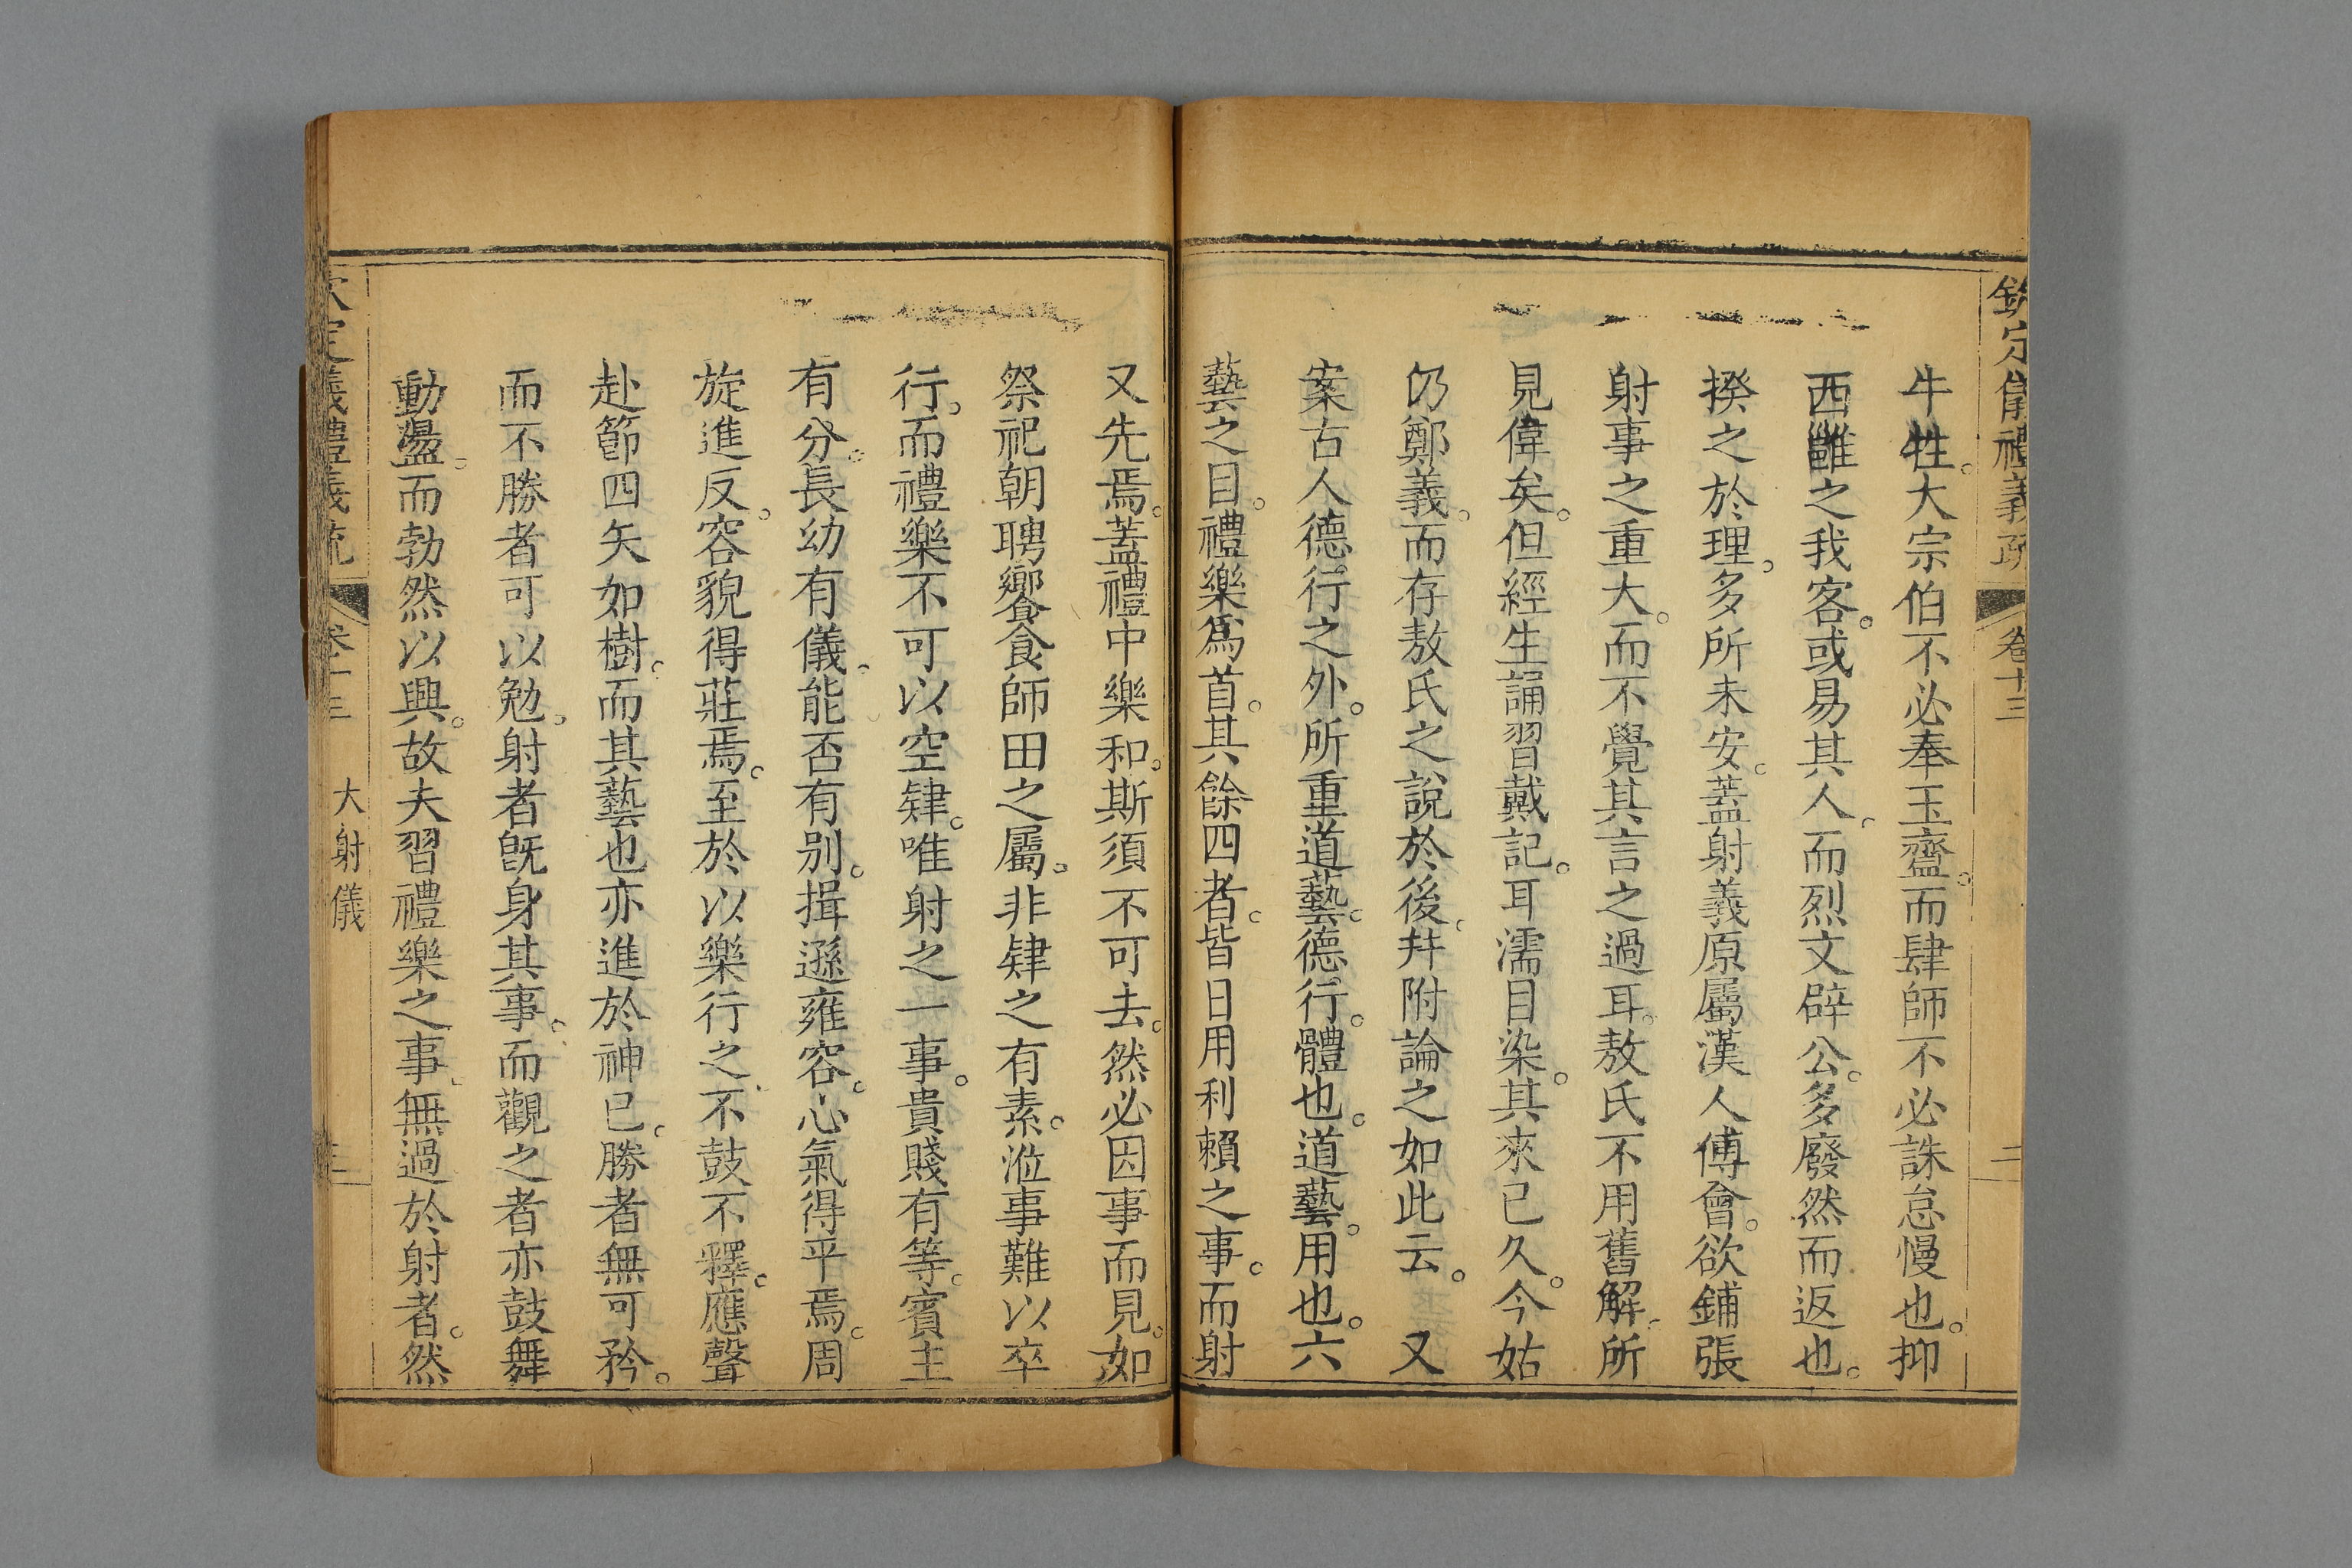 欽定儀禮義疏 卷十三 二
牛牲。大宗伯不必奉玉齍。而肆師不必誅怠慢也。抑
西雝之我客。或易其人。而烈文辟公。多廢然而返也。
揆之於理。多所未安。蓋射義原屬漢人傅會。欲鋪張
射事之重大。而不覺其言之過耳。敖氏不用舊解。所
見偉矣。但經生誦習戴記。耳濡目染。其來已久。今姑
仍鄭義。而存敖氏之說於後。幷附論之如此云。又
案古人德。行之外。所重道藝。德。行。體也。道藝。用也。六
藝之目。禮樂爲首。其餘四者。皆日用利賴之事。而射
又先焉。蓋禮中樂和。斯須不可去。然必因事而見。如
祭祀朝聘饗食師田之屬。非肄之有素。涖事難以卒
行。而禮樂不可以空肄。唯射之一事。貴賤有等。賓主
有分。長幼有儀。能否有别。揖遜雍容。心氣得平焉。周
旋進反。容貌得莊焉。至於以樂行之。不鼓不釋。應聲
赴節四矢如樹。而其藝也亦進於神已。勝者無可矜。
而不勝者可以勉。射者旣身其事。而觀之者亦鼓舞
動盪。而勃然以興。故夫習禮樂之事。無過於射者。然
欽定儀禮義疏 卷十三 大射儀